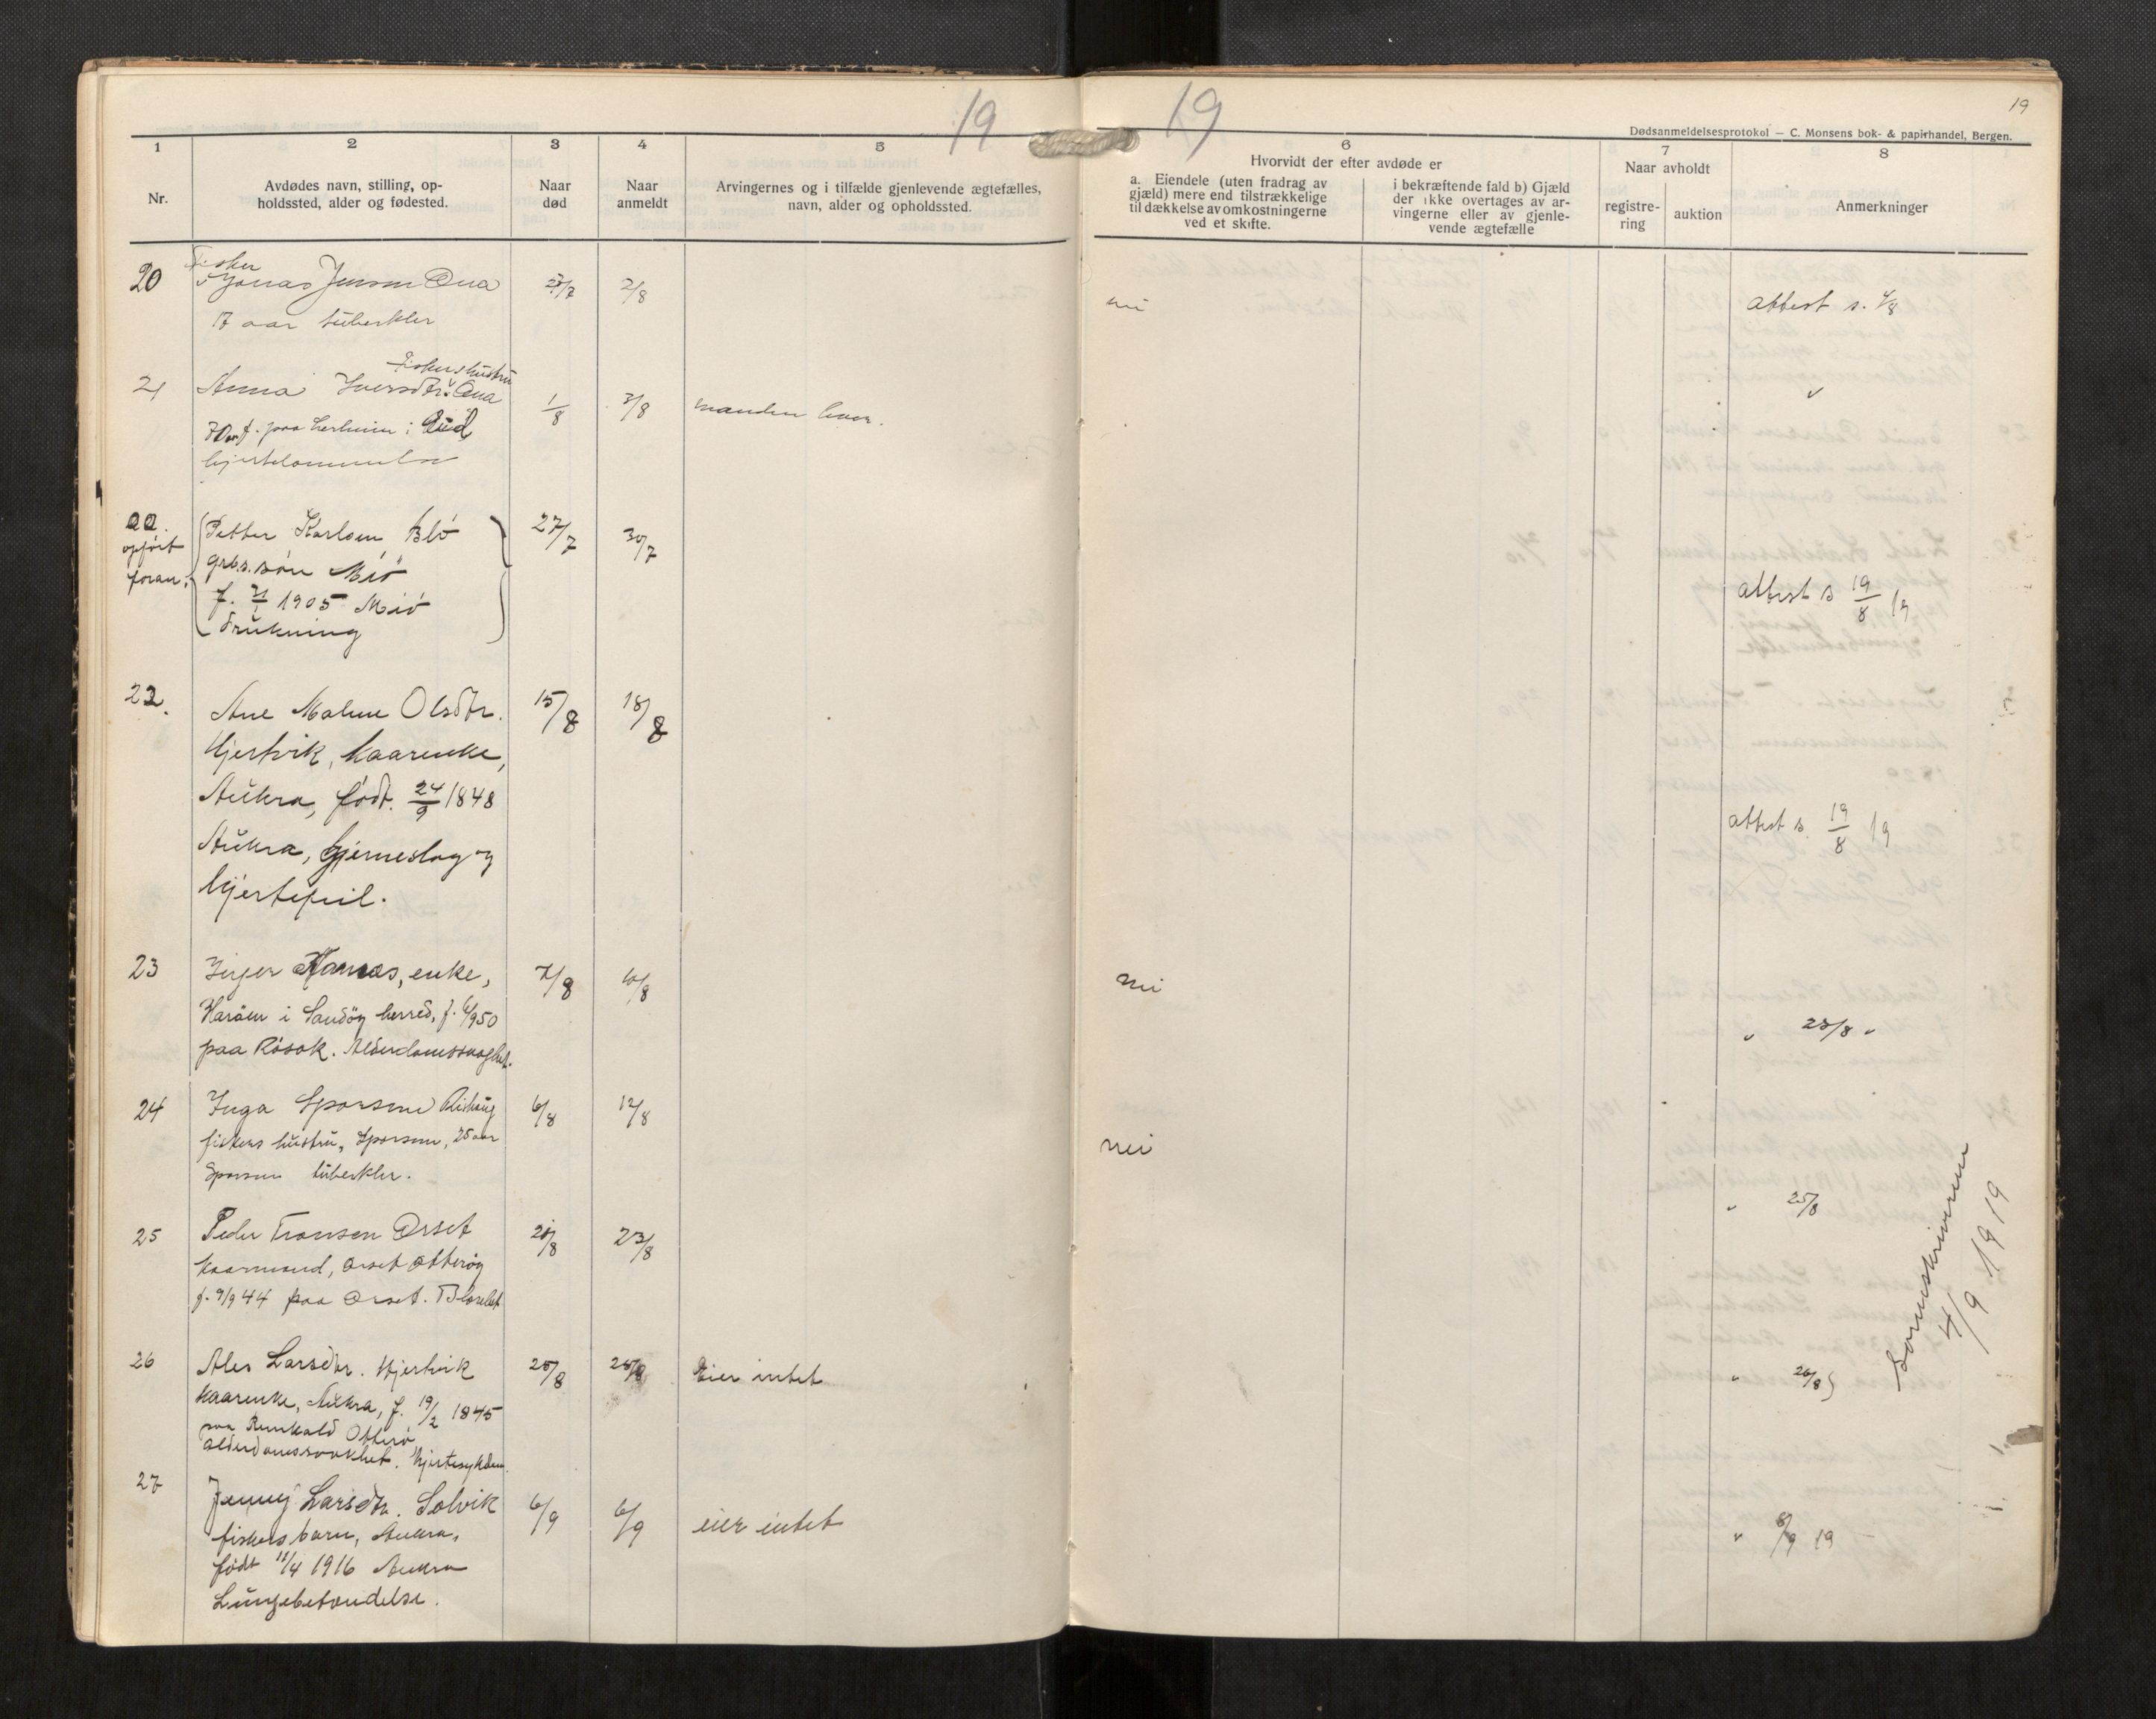 19
19
19
Dødsanmeldelsesprotokol — C. Monsens bok- & papirhandel, Bergen.
1
2
3
4
5
6
7
8
Nr.
Avdødes navn, stilling, op-
holdssted, alder og fødested.
Naar
død
Naar
anmeldt
Arvingernes og i tilfælde gjenlevende ægtefælles,
navn, alder og opholdssted.
Hvorvidt der efter avdøde er
a. Eiendele (uten fradrag av
gjæld) mere end tilstrækkelige
til dækkelse av omkostningerne
ved et skifte.
i bekræftende fald b) Gjæld
der ikke overtages av ar-
vingerne eller av gjenle-
vende ægtefælle
Naar avholdt
registre-
ring
auktion
Anmerkninger
20
Fisker
Jonas Jensen Ona
17 aar tuberkler
27/7
2/8
nei
attest s. 4/8
21
Fiskers hustru
Anna Iversdtr. Ona
f. paa Lerheim i Bud
1/8
3/8
manden lever.
opført
foran.
Petter Karlsen Blø
grbs. søn Miø
f. 1905 Miø
Drukning
27/7
30/7
attest s 19/8 19
22.
Ane Malene Olsdtr.
Hjertvik, kaarenke,
Aukra, født. 24/9 1848
Aukra, hjerneslag og
hjertefeil.
15/8
18/8
attest s. 19/8 19
23
Inger Hanas, enke,
Harøen i Sandøy herred, f. 6/9 50
paa Røsok. Alderdomssvaghet.
7/8
10/8
nei
" 23/8 "
24
Inga Sporsem Rishaug
fiskers hustru, Sporsem, 25 aar
Sporsem tuberkler.
6/8
12/8
nei
" 25/8
25
Peder Tronsen Orset
kaarmand, Orset Otterøy
f. 9/9 44 paa Orset.
20/8
23/8
26
Ales Larsdtr. Hjertvik
kaarenke, Aukra, f. 19/2 1845
paa Renskald Otterø
alderdomssvakhet. Hjertesykdom.
25/8
25/8
Eier intet
" 26/8
Sorenskriveren
4/9 1919
27
Jenny Larsdtr. Solvik
fiskers barn, Aukra,
født 11/4 1916 Aukra
Lungebetændelse.
6/9
6/9
eier intet
" 8/9 19